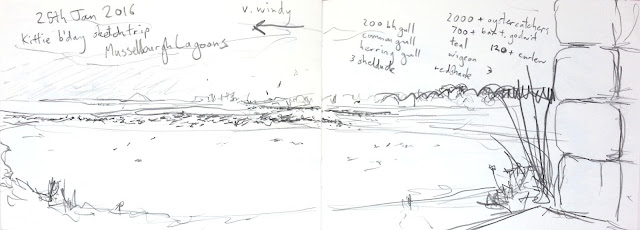 25th Jan 2016
Kittie b'day sketch trip
Musselburgh Lagoons
v. windy
200 bh gull
common gull
herring gull
3 shelduck
2000 + oystercatchers
700 + bar t. godwit
teal
120 + curlew
wigeon
redshank 3